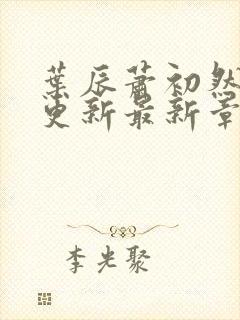 葉辰蕭初然
更新最新章
李光聚